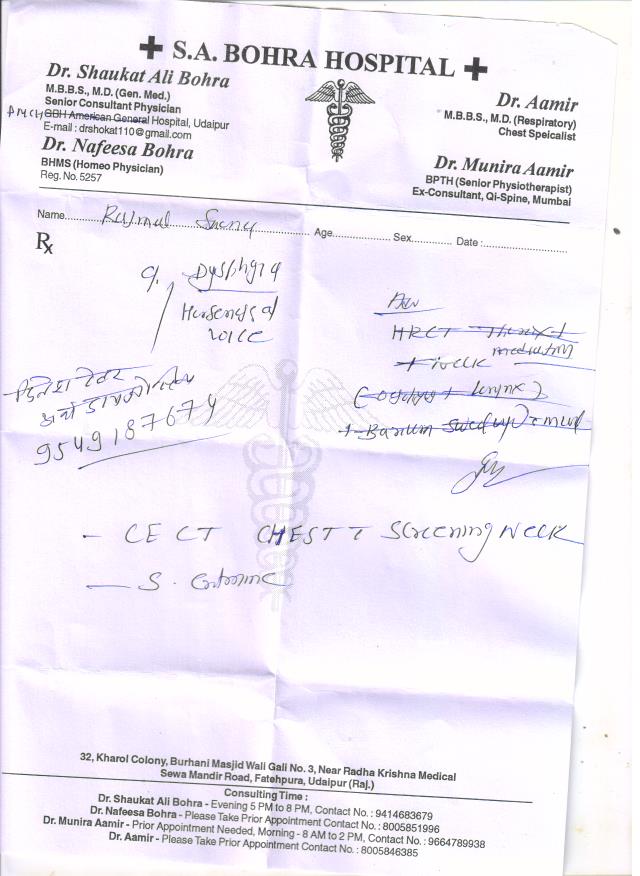 S.A. BOHRA HOSPITAL
Dr. Shaukat Ali Bohra
M.B.B.S., M.D. (Gen. Med.)
Senior Consultant Physician
GBH American General Hospital, Udaipur
E-mail : drshokat110@gmail.com
Dr. Nafeesa Bohra
BHMS (Homeo Physician)
Reg. No. 5257
Dr. Aamir
M.B.B.S., M.D. (Respiratory)
Chest Speicalist
Dr. Munira Aamir
BPTH (Senior Physiotherapist)
Ex-Consultant, Qi-Spine, Mumbai
Name Age Sex Date :
Rx
Dysphgia
Hoarseness of
voice
Adv
HRCT Thorax +
mediastinum
+ neck
+ Barium
9549187674
- CECT CHEST Screening Neck
- S. Creatinine
32, Kharol Colony, Burhani Masjid Wali Gali No. 3, Near Radha Krishna Medical
Sewa Mandir Road, Fatehpura, Udaipur (Raj.)
Consulting Time :
Dr. Shaukat Ali Bohra - Evening 5 PM to 8 PM, Contact No. : 9414683679
Dr. Nafeesa Bohra - Please Take Prior Appointment Contact No. : 8005851996
Dr. Munira Aamir - Prior Appointment Needed, Morning - 8 AM to 2 PM, Contact No. : 9664789938
Dr. Aamir - Please Take Prior Appointment Contact No. : 8005846385